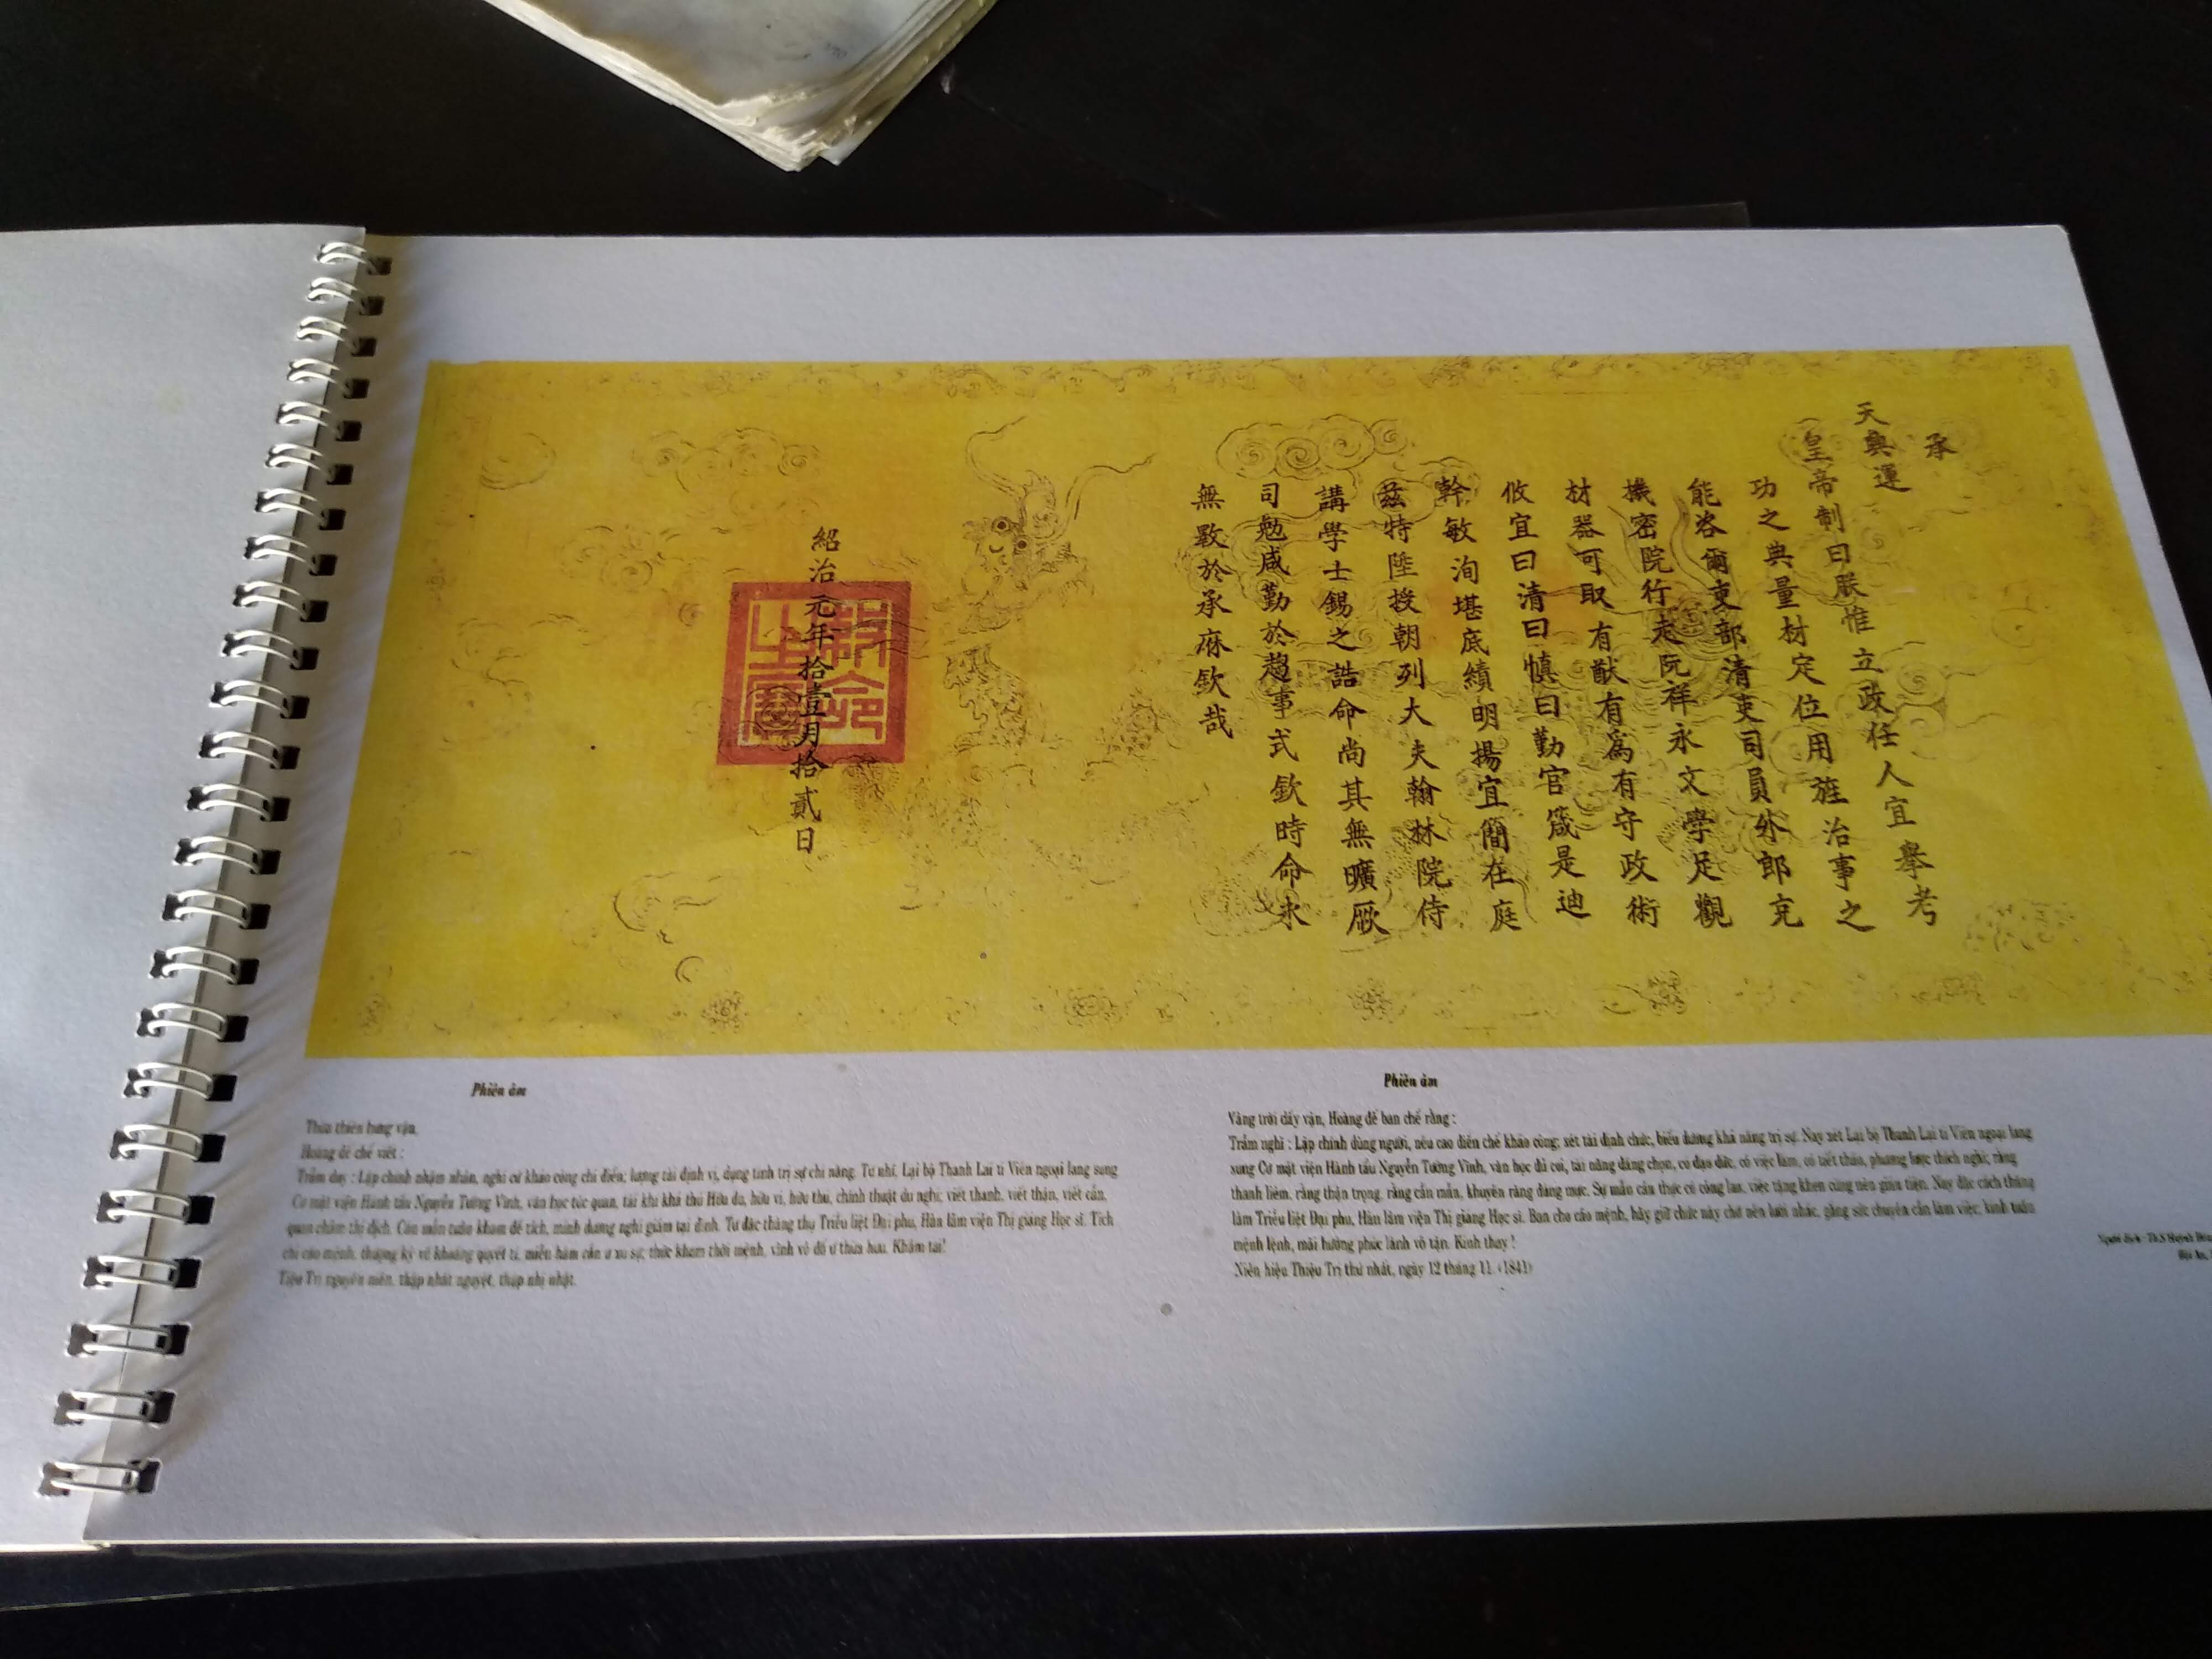 承
天興運
皇帝制曰朕惟立政任人宜舉考
功之典量材定位用旌治事之
能咨爾吏部清吏司員外郎充
機密院行走阮祥永文學足觀
材器可取有猷有爲有守政術
攸宜曰清曰慎曰勤官箴是迪
幹敏洵堪底績明揚宜簡在庭
茲特陞授朝列大夫翰林院侍
講學士錫之誥命尚其無曠厥
司勉咸勤於趨事式欽時命永
無斁於承庥欽哉
紹治元年拾壹月拾貳日
制誥之寶
Phiên âm
Thừa thiên hưng vận,
Hoàng đế chế viết :
Trẫm duy : Lập chính nhậm nhân, nghi cử khảo công chi điển; lượng tài định vị, dụng tinh trị sự chi năng. Tư nhĩ, Lại bộ Thanh Lại ti Viên ngoại lang sung
Cơ mật viện Hành tẩu Nguyễn Tường Vĩnh, văn học túc quan, tài khí khả thủ Hữu du, hữu vi, hữu thủ, chính thuật du nghi; viết thanh, viết thận, viết cần,
quan châm thị địch. Cán mẫn tuân kham để tích, minh dương nghi giản tại đình. Tư đặc thăng thụ Triều liệt Đại phu, Hàn lâm viện Thị giảng Học sĩ. Tích
chi cáo mệnh, thượng kỳ vô khoáng quyết ti, miễn hàm cần ư xu sự; thức khâm thời mệnh, vĩnh vô đố ư thừa hưu. Khâm tai!
Thiệu Trị nguyên niên, thập nhất nguyệt, thập nhị nhật.
Phiên âm
Vâng trời dấy vận, Hoàng đế ban chế rằng :
Trẫm nghĩ : Lập chính dùng người, nêu cao điển chế khảo công; xét tài định chức, biểu dương khả năng trị sự. Nay xét Lại bộ Thanh Lại ti Viên ngoại lang
sung Cơ mật viện Hành tẩu Nguyễn Tường Vĩnh, văn học đủ coi, tài năng đáng chọn, có đạo đức, có việc làm, có tiết tháo, phương lược thích nghi; rằng
thanh liêm, rằng thận trọng, rằng cần mẫn, khuyên răng đúng mực. Sự mẫn cán thực có công lao, việc tặng khen cũng nên giản tiện. Nay đặc cách thăng
làm Triều liệt Đại phu, Hàn lâm viện Thị giảng Học sĩ. Ban cho cáo mệnh, hãy giữ chức này chớ nên lười nhác, gắng sức chuyên cần làm việc; kính tuân
mệnh lệnh, mãi hưởng phúc lành vô tận. Kính thay !
Niên hiệu Thiệu Trị thứ nhất, ngày 12 tháng 11. (1841)
Người dịch: Th.S Huỳnh
Hội An,